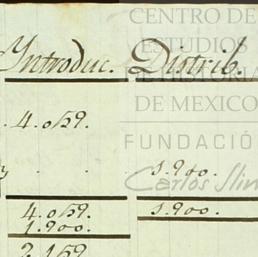 CENTRO DE
ESTUDIOS
DE HISTORIA
DE MEXICO
FUNDACIÓ
Carlos Slim
Introduc. Distrib.
4.059.
1.900.
4.059. 1.900.
1.900.
2.159